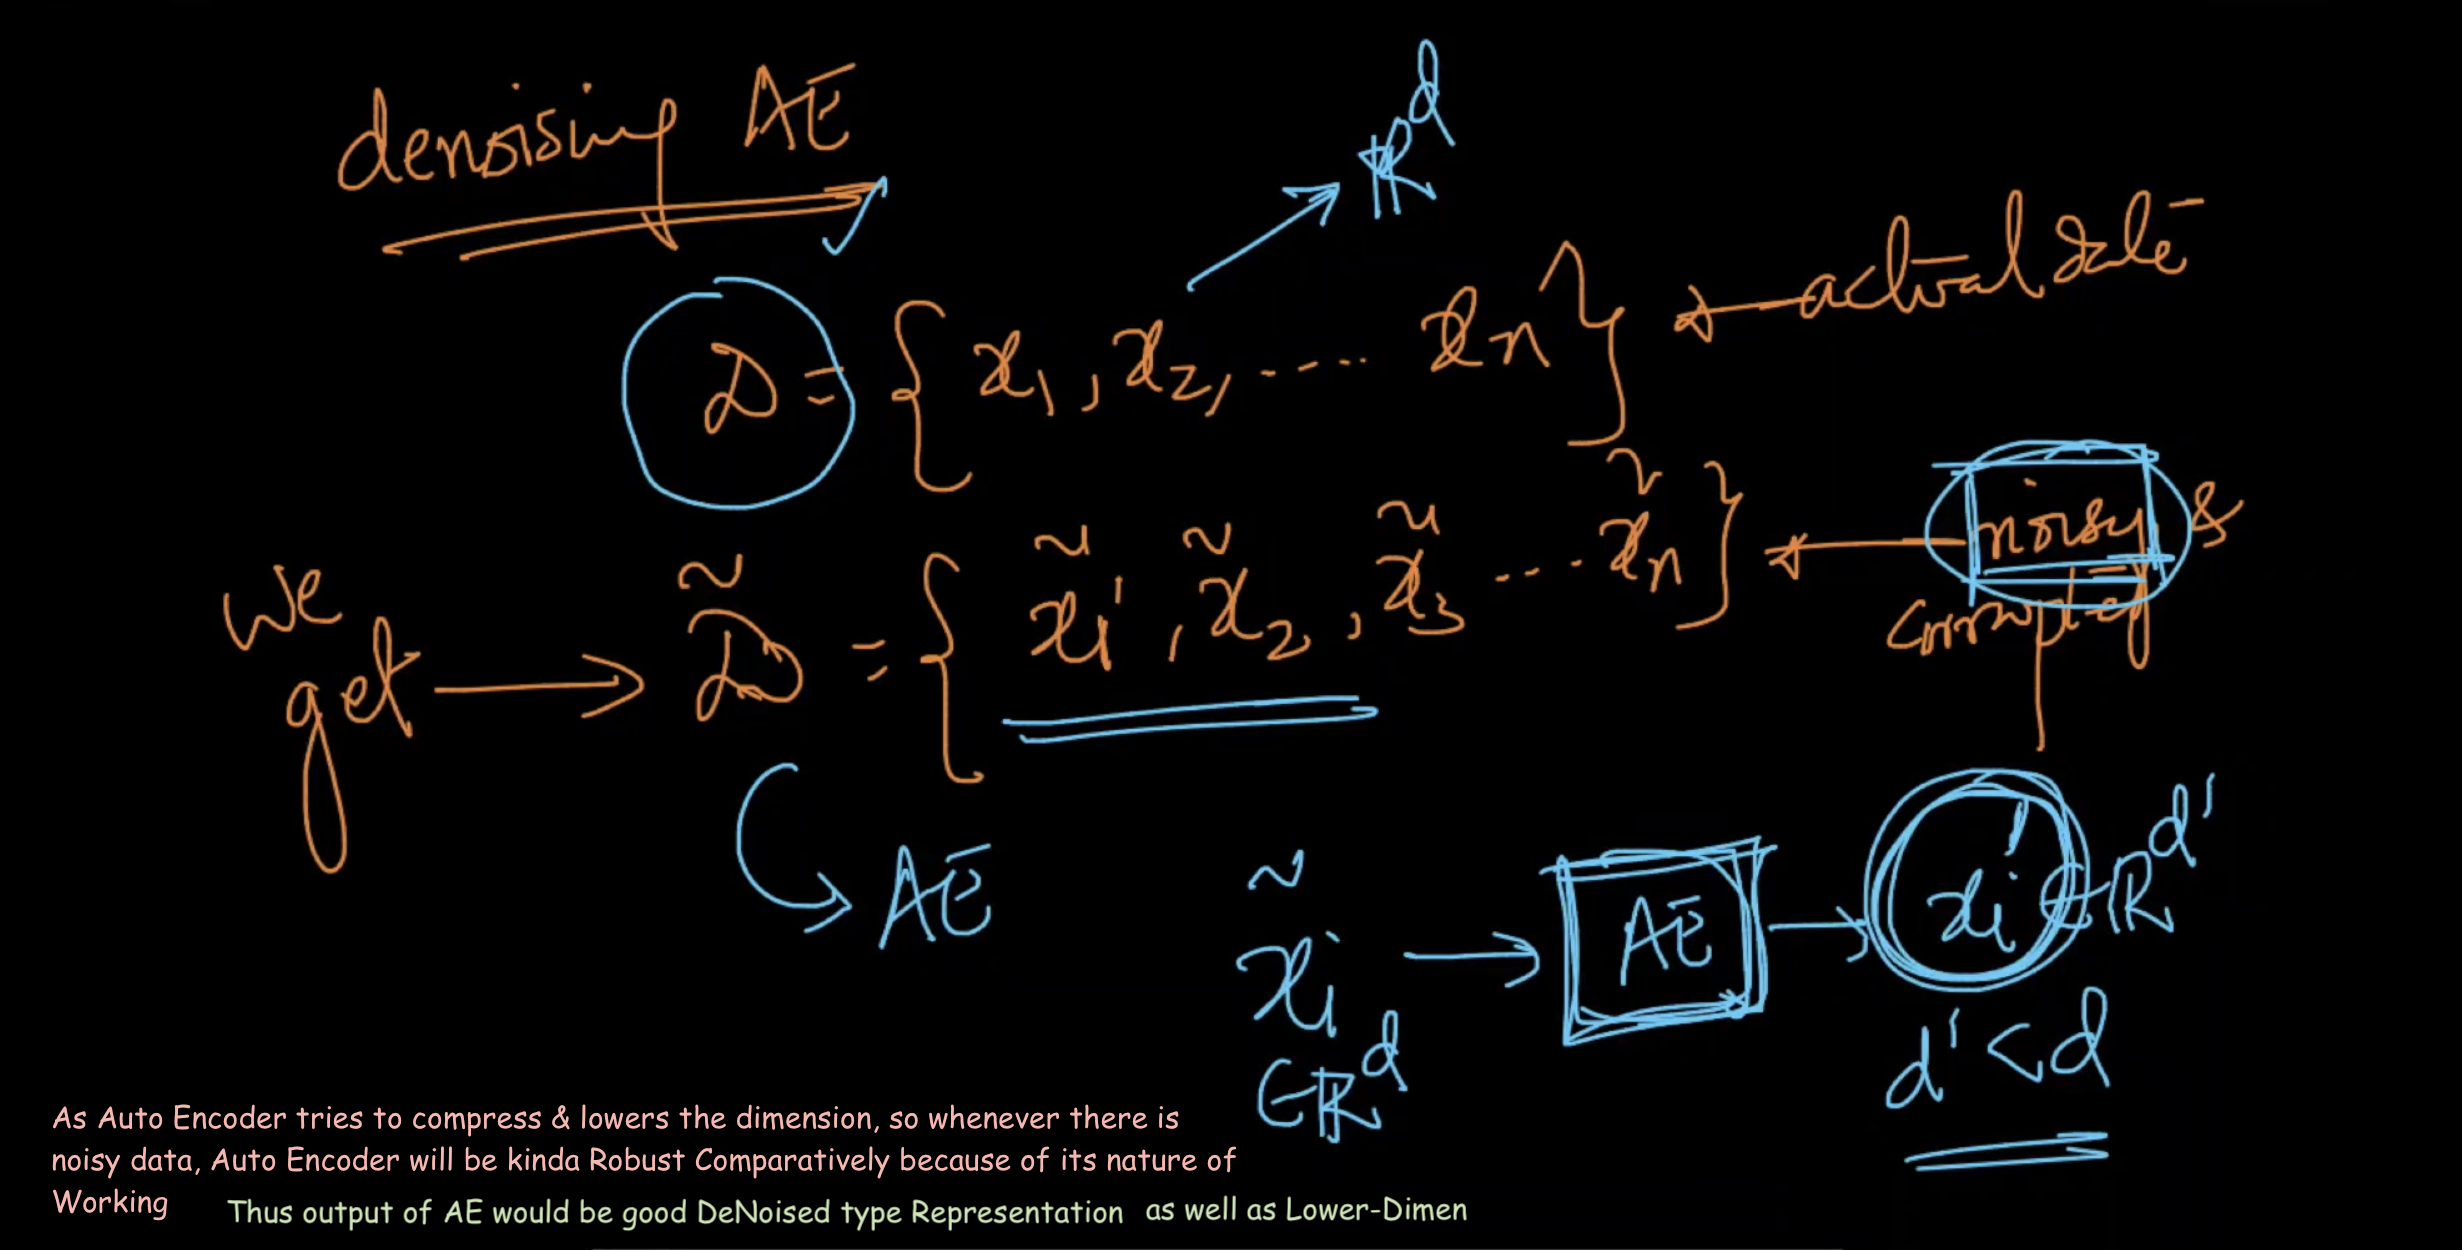 denoising AE
ℝᵈ
D = { x₁, x₂, ---- xₙ } ← actual data
We get → D̃ = { x̃₁', x̃₂, x̃₃ --- x̃ₙ } ← noisy & corrupted
AE
x̃ᵢ → AE → xᵢ' ∈ ℝᵈ'
∈ ℝᵈ
d' < d
As Auto Encoder tries to compress & lowers the dimension, so whenever there is
noisy data, Auto Encoder will be kinda Robust Comparatively because of its nature of
Working
Thus output of AE would be good DeNoised type Representation as well as Lower-Dimen